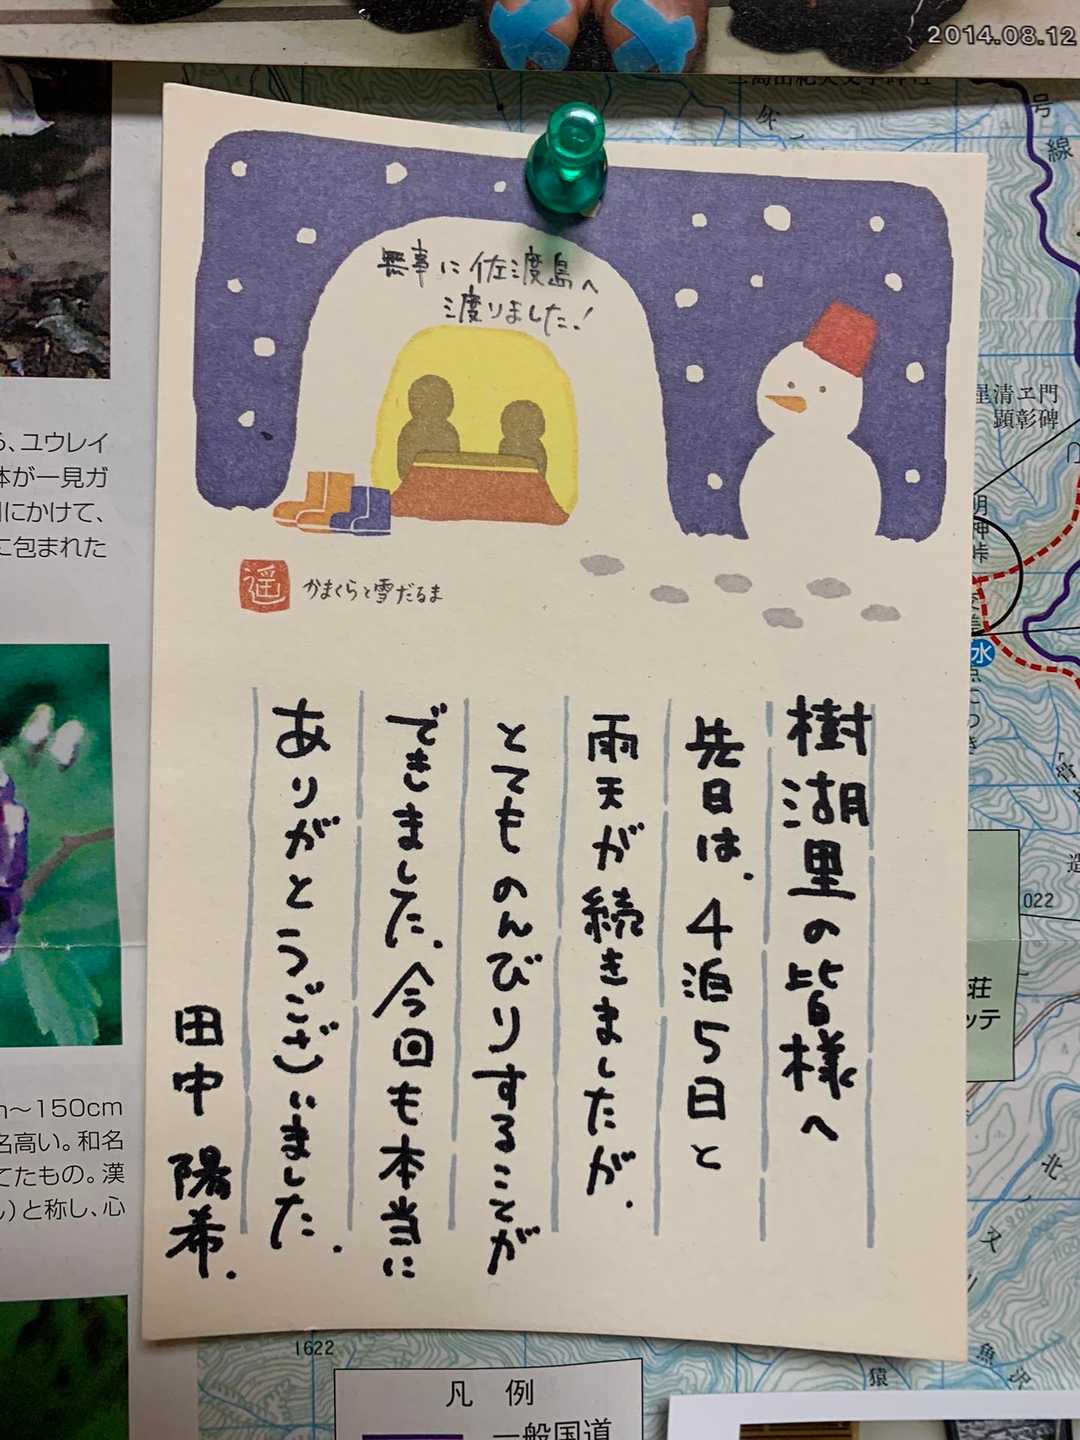 2014.08.12
無事に佐渡島へ
渡りました!
遥
かまくらと雪だるま
樹湖里の皆様へ
先日は、4泊5日と
雨天が続きましたが、
とてものんびりすることが
できました。今回も本当に
ありがとうございました。
田中 陽希.
号線
星清ヱ門
顕彰碑
明神峠
水
022
荘
ッテ
北又
魚沢
猿
1622
凡 例
一般国道
ら、ユウレイ
体が一見ガ
にかけて、
に包まれた
m〜150cm
名高い。和名
てたもの。漢
ん)と称し、心